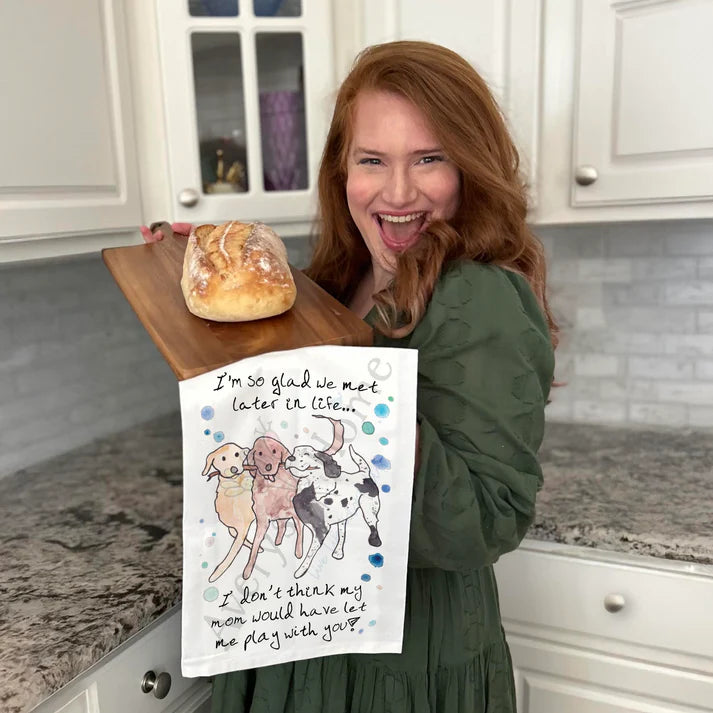 I'm so glad we met
later in life...
I don't think my
mom would have let
me play with you!